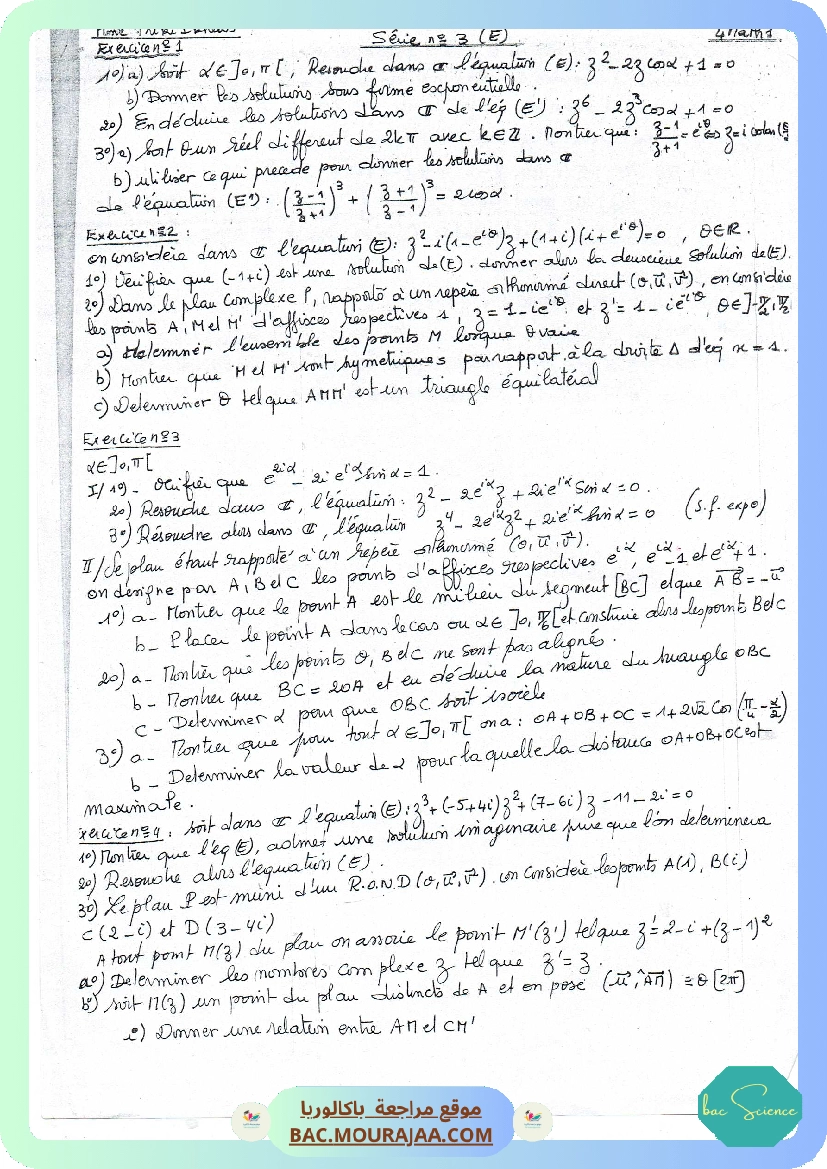 Série n° 3 (E)
4 Maths
Exercice n° 1
1°) a) Soit α ∈ ]0, π[ ; Resoudre dans ℂ l'équation (E) : z² - 2z cosα + 1 = 0
b) Donner les solutions sous forme exponentielle.
2°) En déduire les solutions dans ℂ de l'éq (E') : z⁶ - 2z³ cosα + 1 = 0
3°) a) Soit θ un réel different de 2kπ avec k ∈ ℤ. Montrer que : (z-1)/(z+1) = e^{iθ} ⇔ z = i cotan(
b) utiliser ce qui precede pour donner les solutions dans ℂ
de l'équation (E") : ((z-1)/(z+1))³ + ((z+1)/(z-1))³ = 2cosα.
Exercice n° 2 :
on considère dans ℂ l'equation (E) : z² - i(1-e^{iθ})z + (1+i)(i+e^{iθ}) = 0 , θ ∈ ℝ.
1°) Verifier que (-1+i) est une solution de (E). donner alors la deuxieme solution de (E).
2°) Dans le plan complexe P, rapporté à un repère orthonormé direct (O, u, v), on considère
les points A, M et M' d'affixes respectives 1, z = 1 - ie^{iθ} et z' = 1 - ie^{-iθ}, θ ∈ ]-π/2, π/2[
a) determiner l'ensemble des points M lorsque θ varie
b) Montrer que M et M' sont symetriques par rapport à la droite Δ d'eq x = 1.
c) Determiner θ tel que AMM' est un triangle équilatéral
Exercice n° 3
α ∈ ]0, π[
I/ 1°) - Verifier que e^{2iα} - 2i e^{iα} sinα = 1.
2°) Resoudre dans ℂ, l'équation : z² - 2e^{iα}z + 2ie^{iα} sinα = 0.
3°) Résoudre alors dans ℂ, l'équation z⁴ - 2e^{iα}z² + 2ie^{iα} sinα = 0 (s.f. expo)
II/ Le plan étant rapporté à un repère orthonormé (O, u, v).
on designe par A, B et C les points d'affixes respectives e^{iα}, e^{iα}-1 et e^{iα}+1.
1°) a - Montrer que le point A est le milieu du segment [BC] et que AB = -u
b - Placer le point A dans le cas ou α ∈ ]0, π/6[ et construire alors les points B et C
2°) a - Montrer que les points O, B et C ne sont pas alignés.
b - Montrer que BC = 2OA et en déduire la nature du triangle OBC
c - Determiner α pour que OBC soit isocèle
3°) a - Montrer que pour tout α ∈ ]0, π[ on a : OA + OB + OC = 1 + 2√2 Cos(π/4 - α/2)
b - Determiner la valeur de α pour laquelle la distance OA+OB+OC est
maximale.
Exercice n° 4 : soit dans ℂ l'équation (E) : z³ + (-5+4i)z² + (7-6i)z - 11 - 2i = 0
1°) Montrer que l'eq (E), admet une solution imaginaire pure que l'on determinera
2°) Resoudre alors l'equation (E).
3°) Le plan P est muni d'un R.O.N.D (O, u, v). on Considère les points A(1), B(i)
C(2-i) et D(3-4i)
A tout point M(z) du plan on associe le point M'(z') tel que z' = 2-i+(z-1)²
a°) Determiner les nombres complexe z tel que z' = z.
b°) soit M(z) un point du plan distincts de A et on pose (u, AM) ≡ θ [2π]
i) Donner une relation entre AM et CM'
موقع مراجعة باكالوريا
BAC.MOURAJAA.COM
bac Science